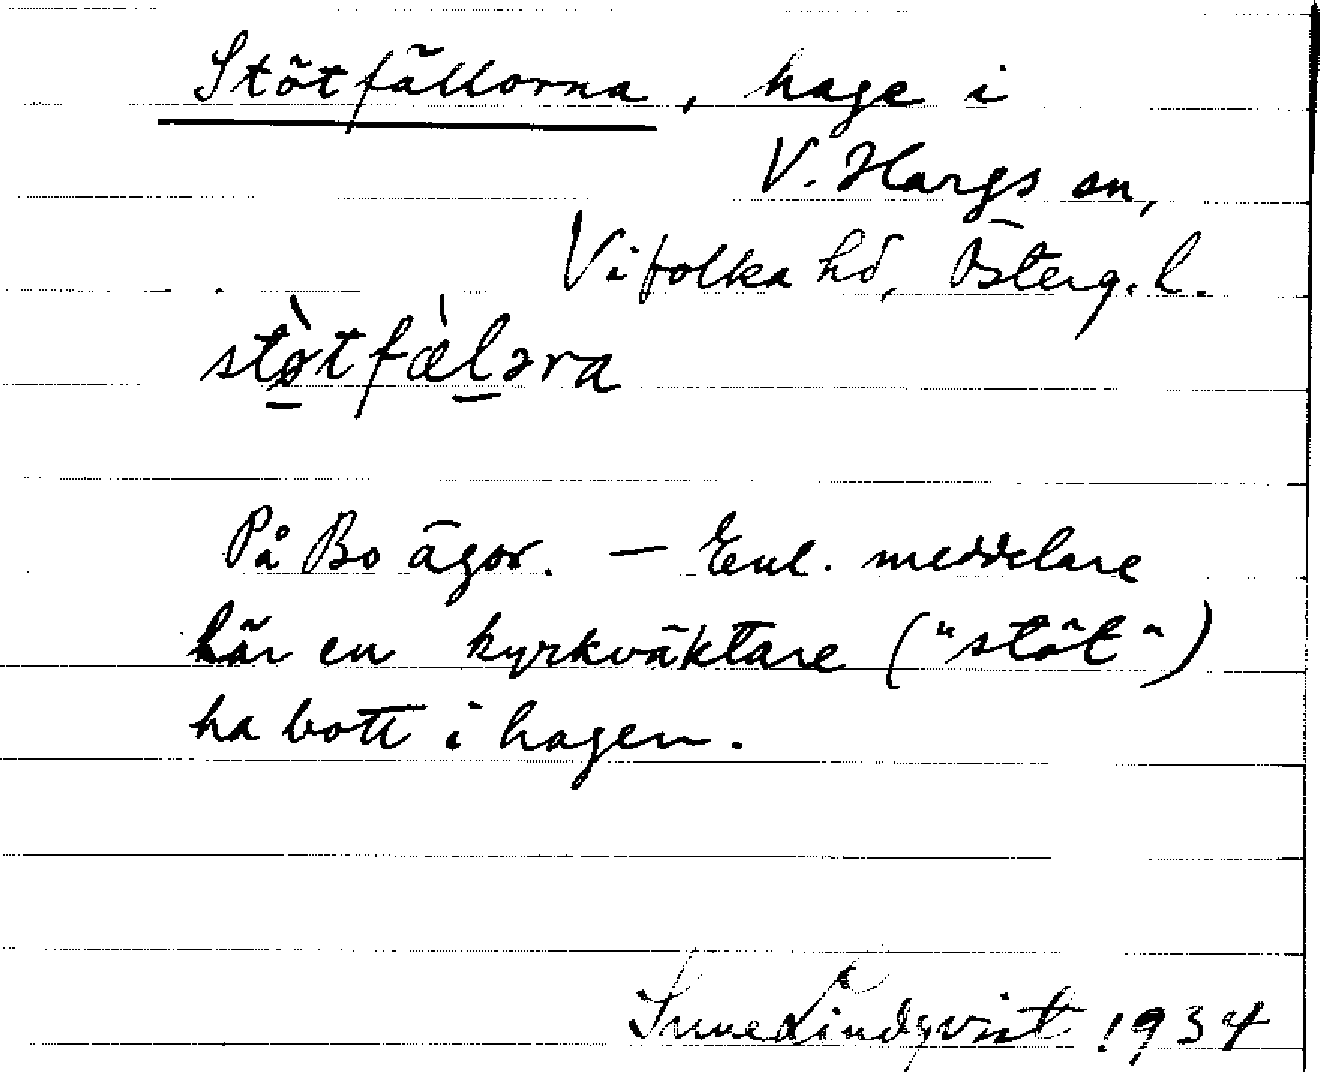 Stötfällorna, hage i
V. Hargs sn,
Vifolka hd, Österg. l.
stø̀tfæ̀lərа
På Bo ägor. — Enl. meddelare
lär en kyrkväktare ("stöt")
ha bott i hagen.
Sune Lindqvist 1934